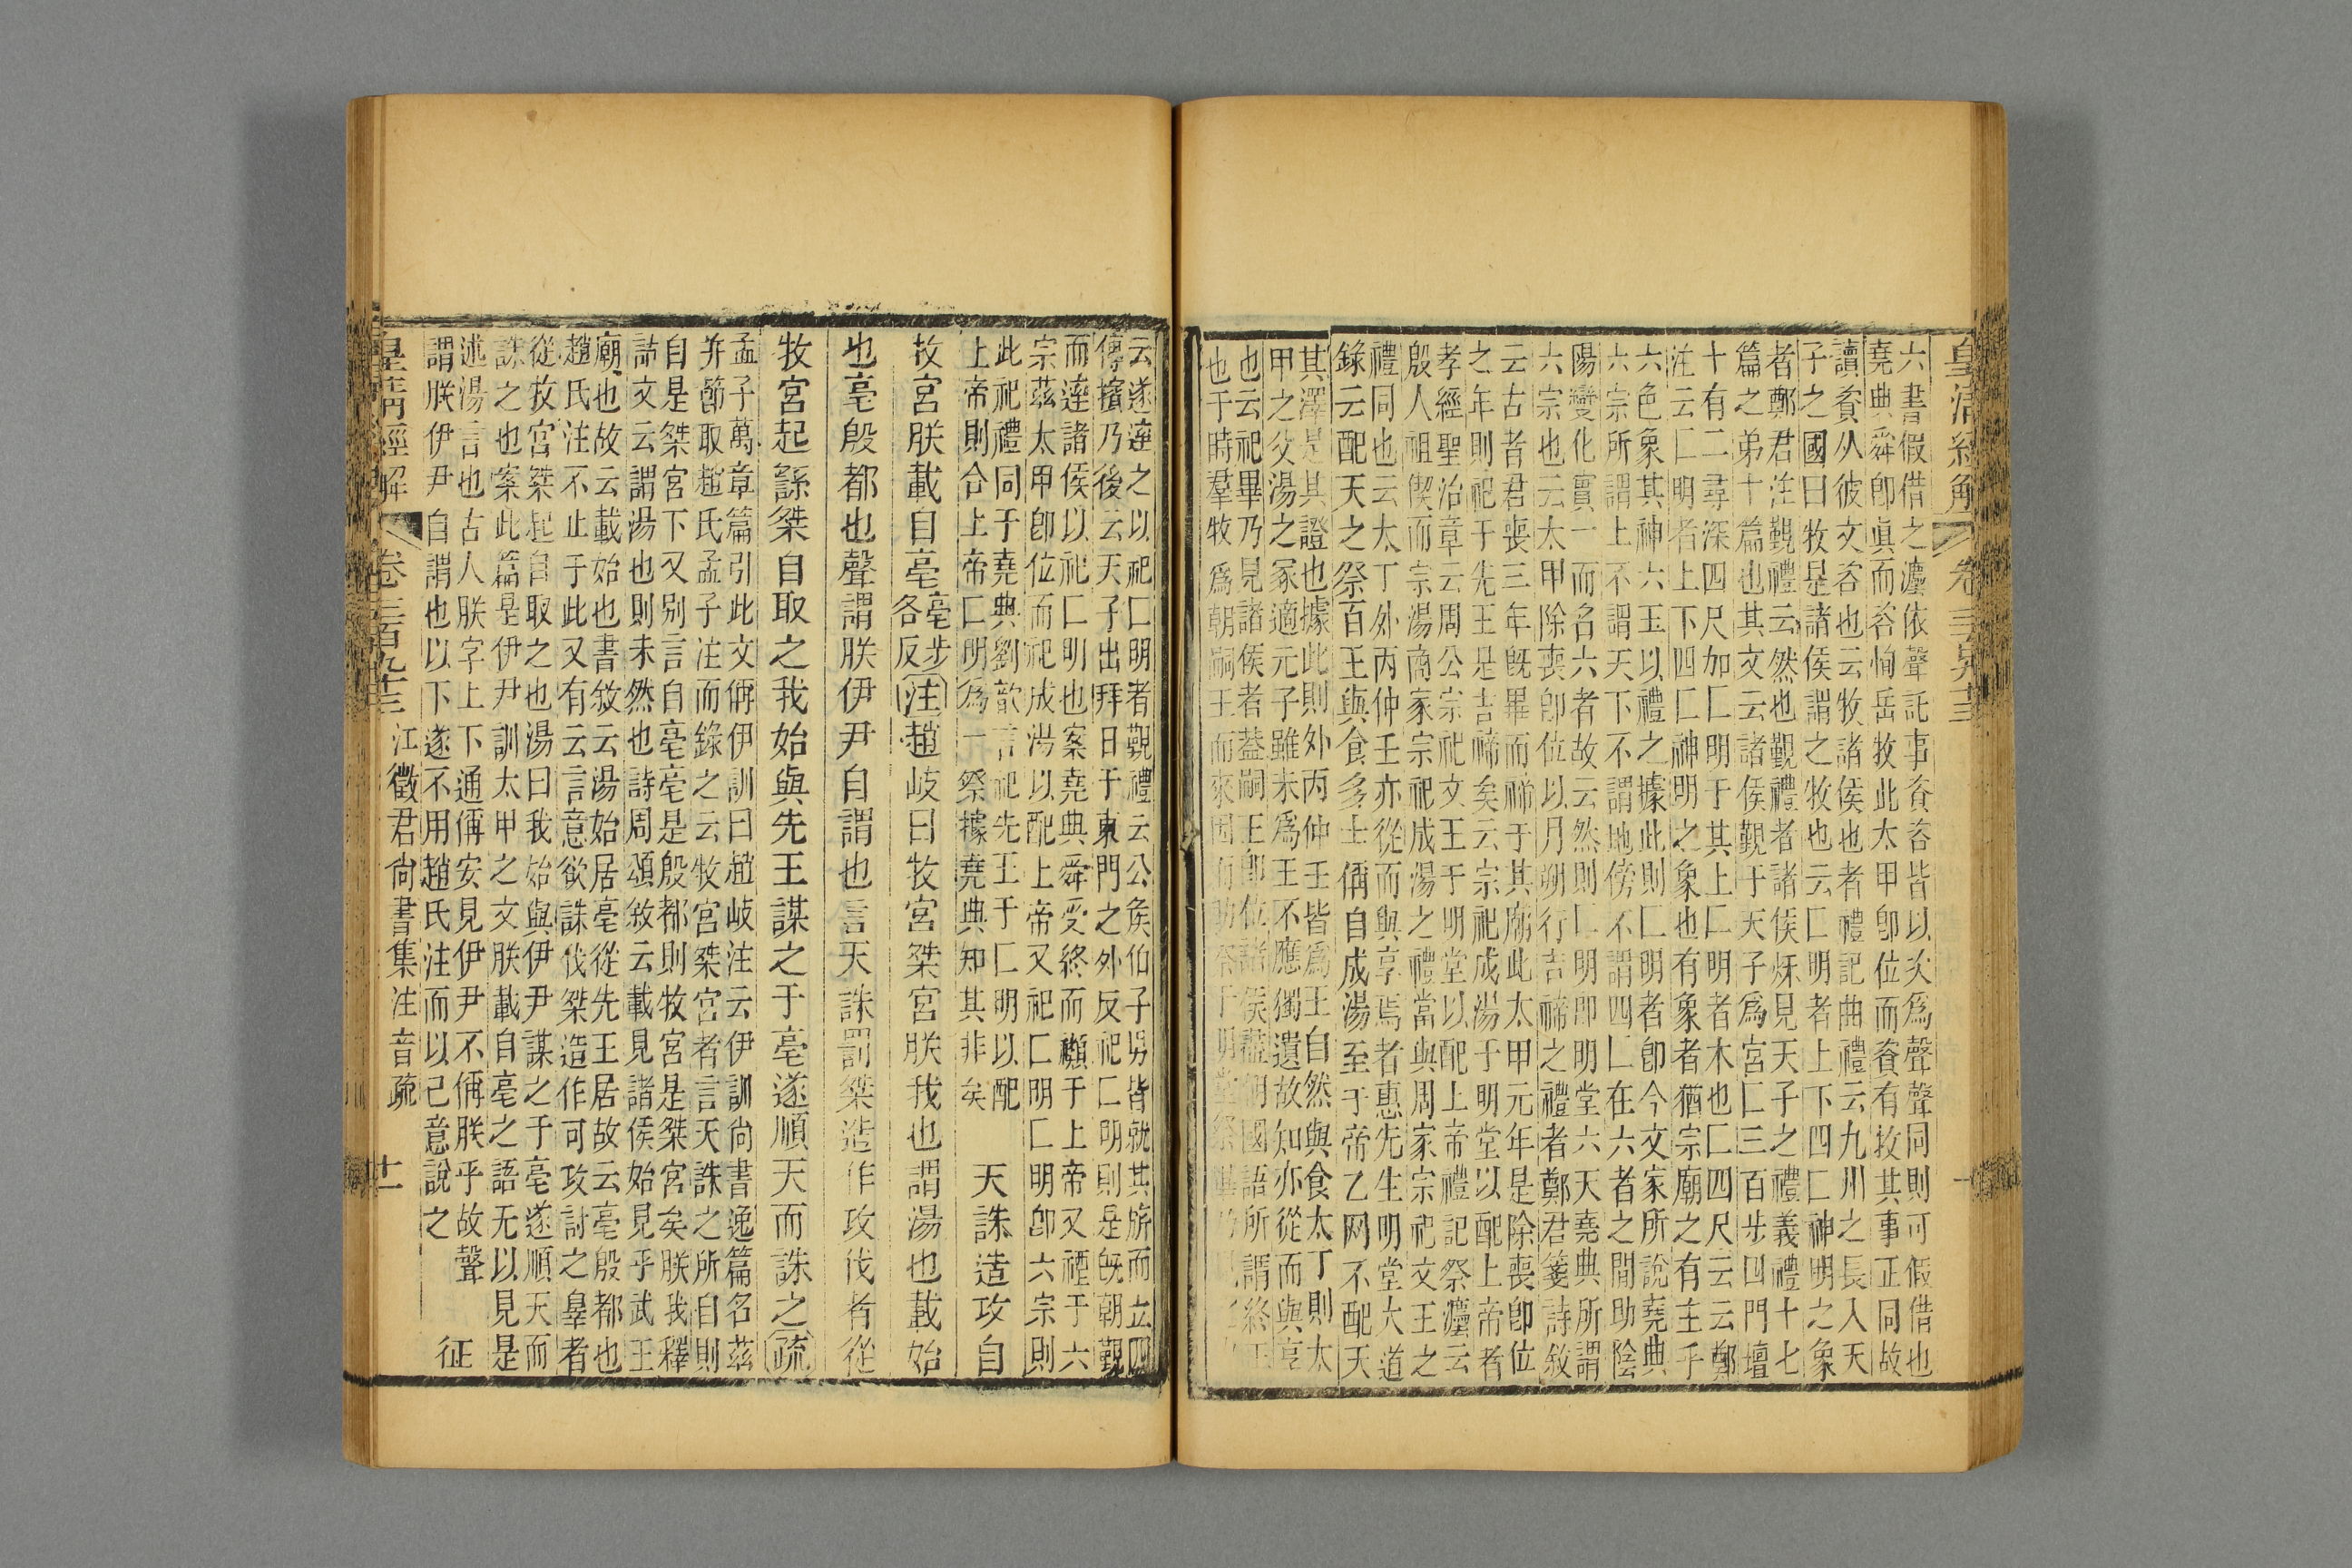 六書假借之灋依聲託事資咨皆以次爲聲聲同則可假借也
堯典舜卽眞而咨恂岳牧此太甲卽位而資有牧其事正同故
讀資从彼文咨也云牧諸侯也者禮記曲禮云九州之長入天
子之國曰牧是諸侯謂之牧也云匚明者上下四匚神明之象
者鄭君注覲禮云然也覲禮者諸侯烁見天子之禮義禮十七
篇之弟十篇也其文云諸侯覲于天子爲宮匚三百步四門壇
十有二尋深四尺加匚明于其上匚明者木也匚四尺云云鄭
注云匚明者上下四匚神明之象也有象者猶宗廟之有主乎
六色象其神六玉以禮之據此則匚明者卽今文家所說堯典
六宗所謂上不謂天下不謂地傍不謂四匚在六者之閒助陰
陽變化實一而名六者故云然則匚明卽明堂六天堯典所謂
六宗也云太甲除喪卽位以月朔行吉禘之禮者鄭君箋詩敘
云古者君喪三年旣畢而禘于其廟此太甲元年是除喪卽位
之年則祀于先王是吉禘矣云宗祀成湯于明堂以配上帝者
孝經聖治章云周公宗祀文王于明堂以配上帝禮記祭灋云
殷人祖偰而宗湯商家宗祀成湯之禮當與周家宗祀文王之
禮同也云太丁外丙仲壬亦從而與享焉者惠先生明堂大道
錄云配天之祭百王與食多士偁自成湯至于帝乙网不配天
其澤是其證也據此則外丙仲壬皆爲王自然與食太丁則太
甲之父湯之冢適元子雖未爲王不應獨遺故知亦從而與亯
也云祀畢乃見諸侯者葢嗣王卽位諸侯朝國語所謂終王
也于時羣牧爲朝嗣王而來因助祭于明堂祭
云遂達之以祀匚明者覲禮云公矦伯子男皆就其旂而立四
傳擯乃後云天子出拜日于東門之外反祀匚明則是旣朝覲
而達諸侯以祀匚明也案堯典舜受終而䫑于上帝又禋于六
宗茲太甲卽位而祀成湯以配上帝又祀匚明匚明卽六宗則
此祀禮同于堯典劉歆言祀先王于匚明以配
上帝則合上帝匚明爲一祭據堯典知其非矣
天誅造攻自
牧宮朕載自亳
亳步
各反
注趙岐曰牧宮桀宮朕我也謂湯也載始
也亳殷都也聲謂朕伊尹自謂也言天誅罰桀造作攻伐者從
牧宮起繇桀自取之我始與先王謀之于亳遂順天而誅之疏
孟子萬章篇引此文偁伊訓曰趙岐注云伊訓尙書逸篇名茲
并節取趙氏孟子注而錄之云牧宮桀宮者言天誅之所自則
自是桀宮下又别言自亳亳是殷都則牧宮是桀宮矣朕我釋
詁文云謂湯也則未然也詩周頌敘云載見諸侯始見乎武王
廟也故云載始也書敘云湯始居亳從先王居故云亳殷都也
趙氏注不止于此又有云言意欲誅伐桀造作可攻討之辠者
從牧宮桀起自取之也湯曰我始與伊尹謀之于亳遂順天而
誅之也案此篇是伊尹訓太甲之文朕載自亳之語无以見是
述湯言也古人朕字上下通偁安見伊尹不偁朕乎故聲
謂朕伊尹自謂也以下遂不用趙氏注而以己意說之
征
皇淸經解 卷三百九十三 江徵君尙書集注音疏 十一